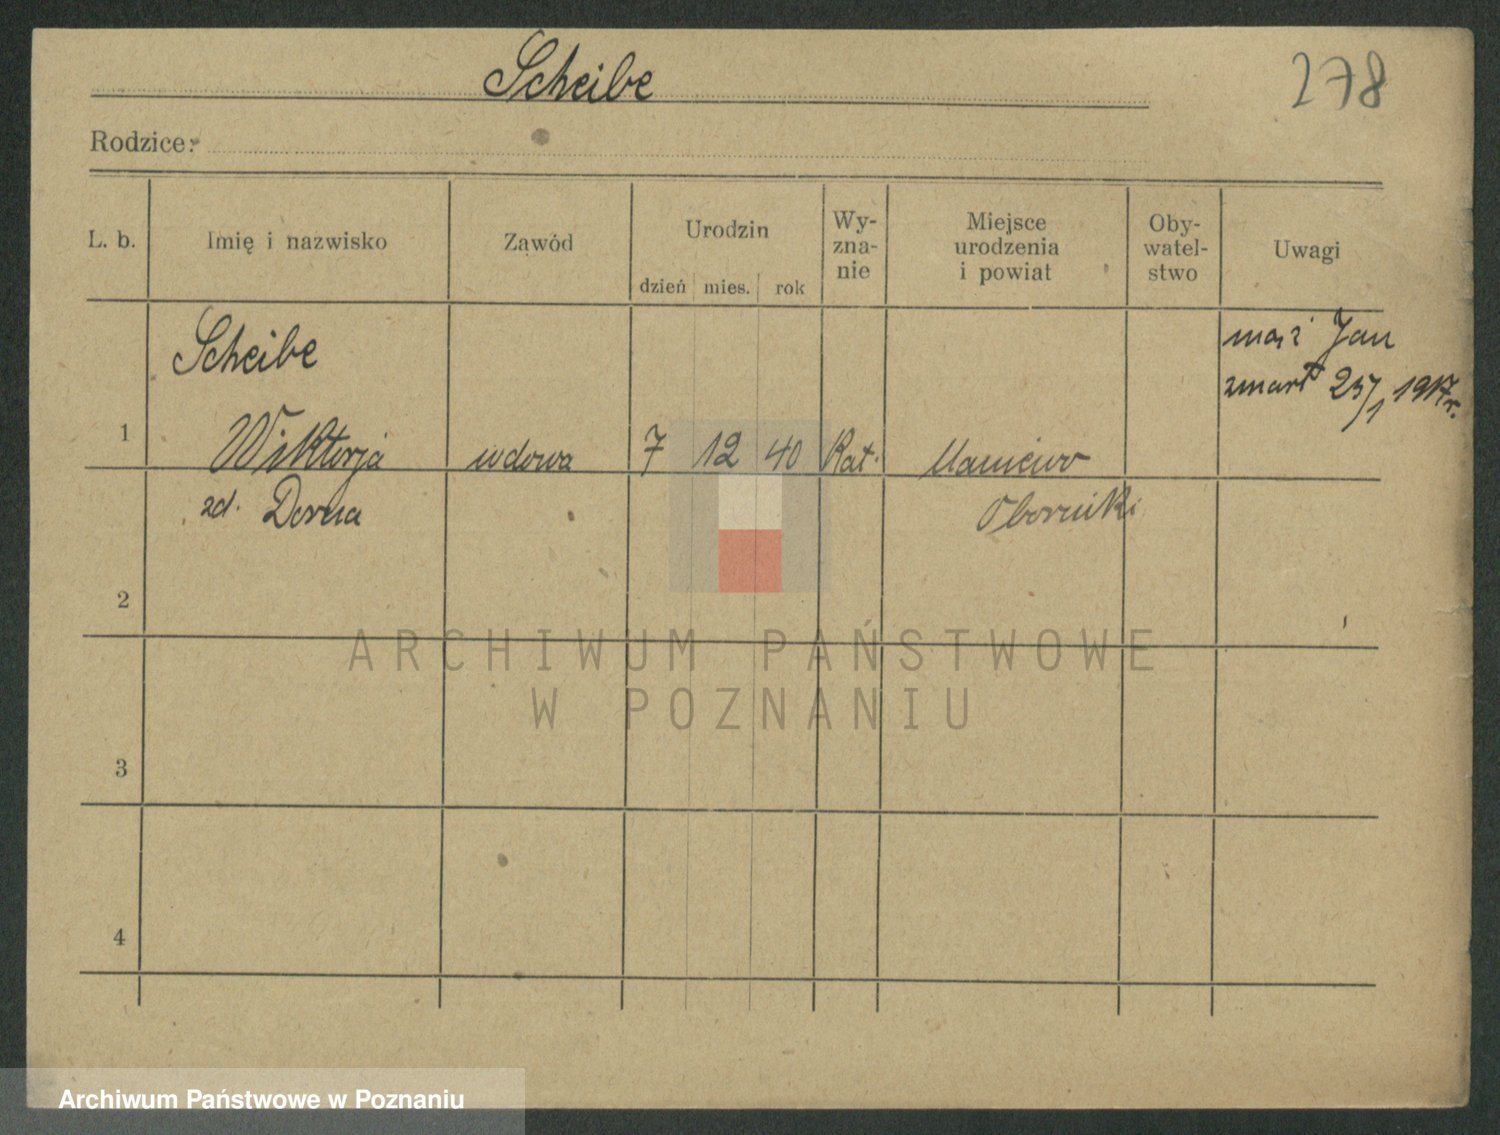 Scheibe
278
Rodzice:
L. b. Imię i nazwisko Zawód Urodzin dzień mies. rok Wy-zna-nie Miejsce urodzenia i powiat Oby-watel-stwo Uwagi
Scheibe
mąż Jan
zmarł 25/1 1917 r.
1 Wiktorja wdowa 7 12 40 Kat. Maniewo
zd. Dorna Oborniki
2
3
4
ARCHIWUM PAŃSTWOWE
W POZNANIU
Archiwum Państwowe w Poznaniu